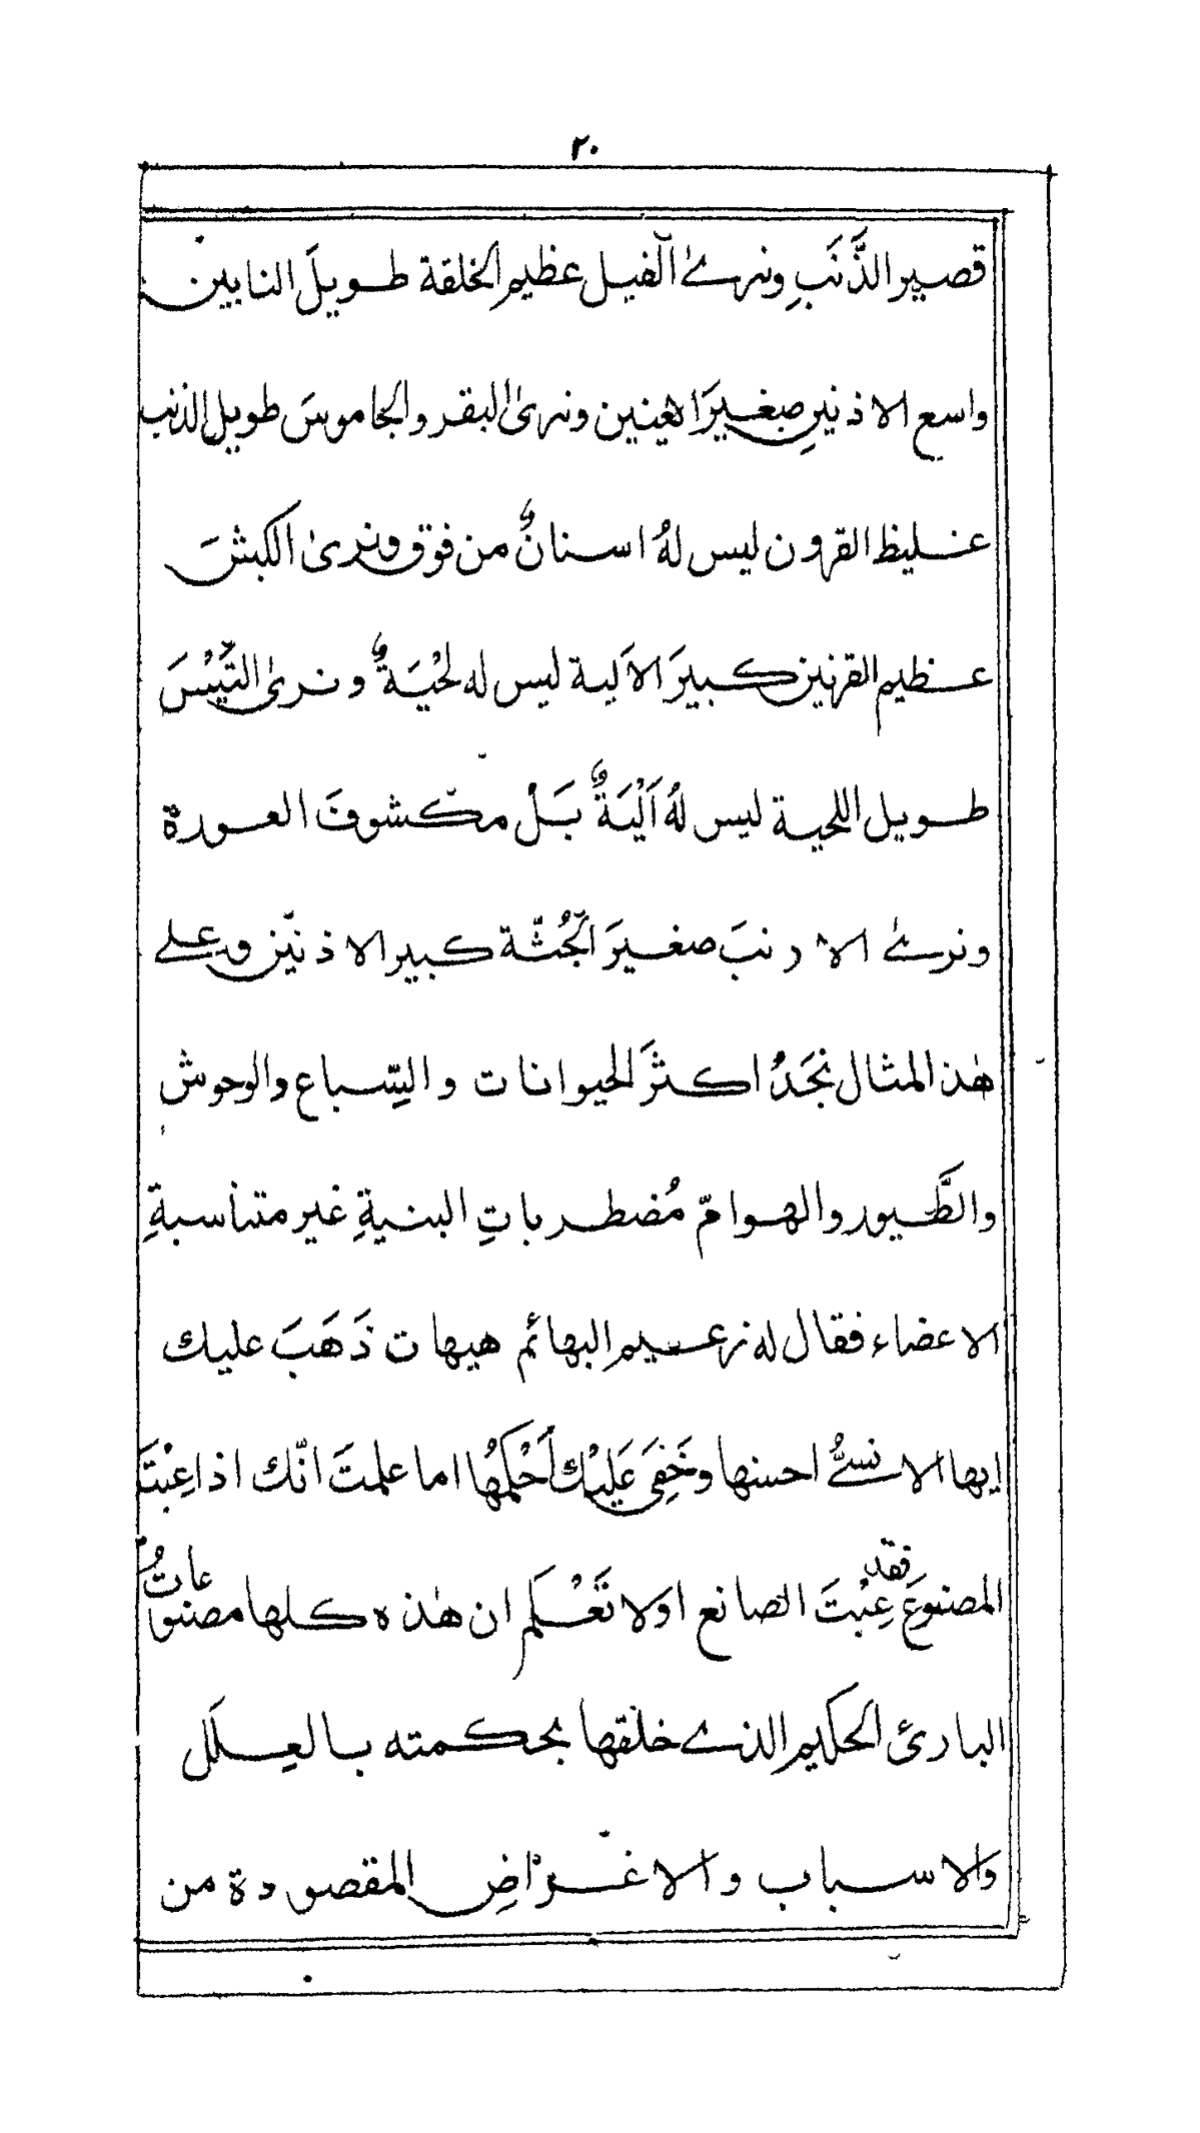 ٢٠
قصير الذَّنَبِ ونرىٰ الفيل عظيم الخلقة طويلَ النابين
واسع الاذنينِ صغيرَ العينين ونرىٰ البقر والجاموسَ طويل الذنب
غليظ القرون ليس لهُ اسنانٌ من فوق ونرىٰ الكبشَ
عظيم القرنين كبيرَ الالية ليس له لحْيَةٌ ونرىٰ التَّيْسَ
طويل اللحية ليس لهُ اَلْيَةٌ بَلْ مكشوفَ العورة
ونرىٰ الارنبَ صغيرَ الجُثّة كبير الاذنين وعلى
هٰذ المثال نجَدُ اكثرَ الحيوانات والسِّباع والوحوش
والطَّيور والهوامّ مُضطرباتِ البنيةِ غير متناسبةِ
الاعضاء فقال له زعيم البهائم هيهات ذَهَبَ عليك
ايها الانسىُّ احسنها وخَفِىَ عَلَيْك اَحْكَمُها اما علمتَ انّك اذا عِبْتَ
المصنوعَ فقد عِبْتَ الصانع اولا تَعْلَم ان هٰذه كلها مصنوعاتُ
البارئ الحكيم الذى خلقها بحكمته بالعِلَل
والاسباب والاغراضِ المقصودة من